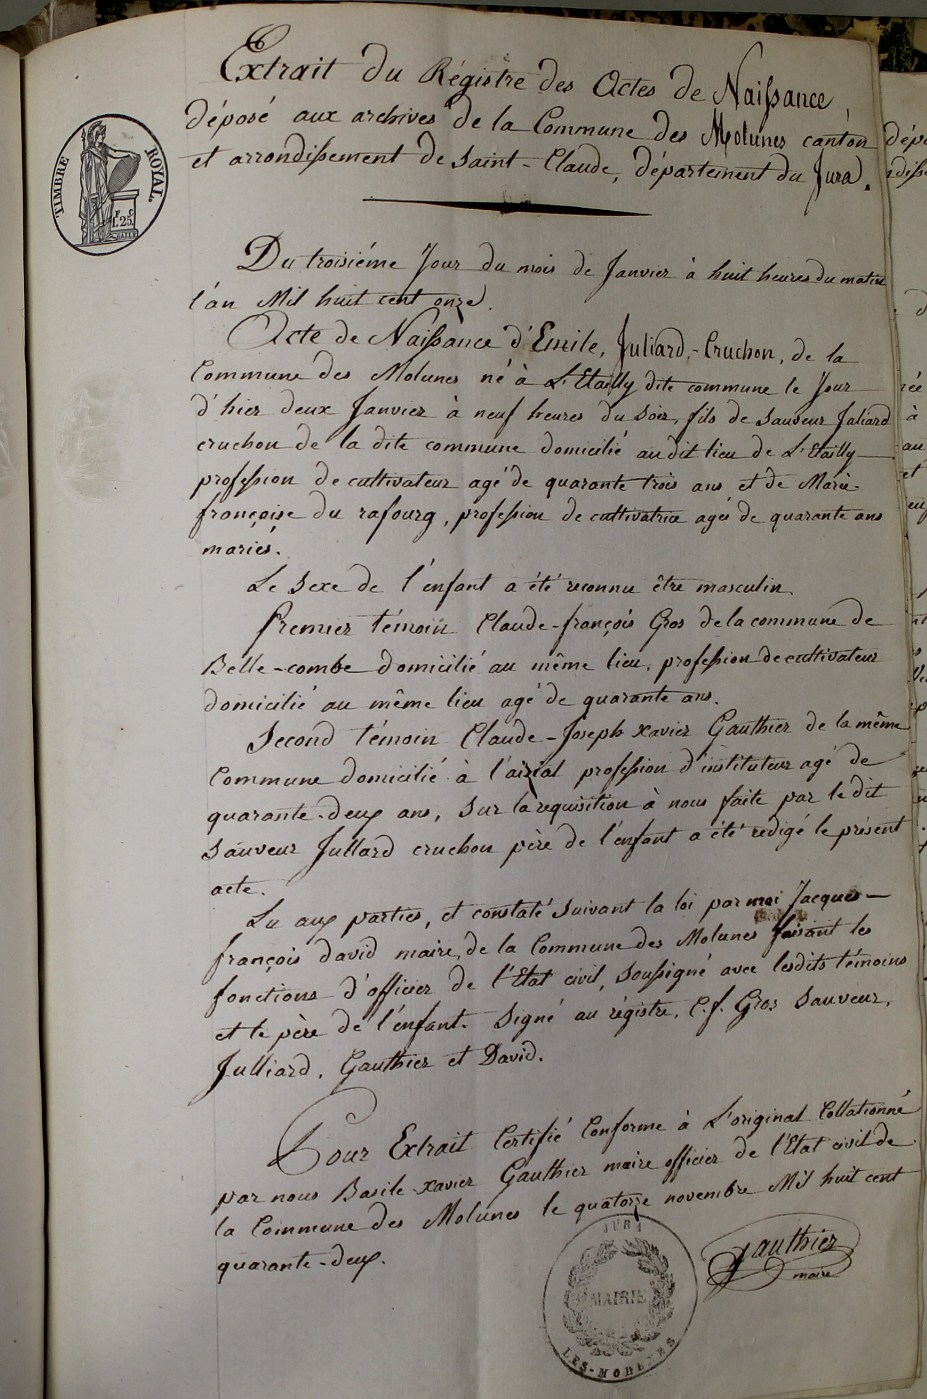 Extrait du Régistre des Actes de Naissance,
déposé aux archives de la Commune des Molunes canton
et arrondissement de Saint-Claude, département du Jura.
TIMBRE ROYAL
25
Du troisiéme Jour du mois de Janvier à huit heures du matin
l'an Mil huit cent onze.
Acte de Naissance d'Emile, Juliard-Cruchon, de la
Commune des Molunes né à L'Etailly dite commune le Jour
d'hier deux Janvier à neuf heures du soir, fils de Sauveur Juliard
cruchon de la dite commune domicilié au dit lieu de L'Etailly
profession de cultivateur agé de quarante trois ans et de Marie-
françoise du rafourg, profession de cultivatrice agée de quarante ans
mariés.
Le Sexe de l'enfant a été reconnu être masculin.
Premier témoin Claude-françois Gros de la commune de
Belle-combe domicilié au même lieu, profession de cultivateur
domicilié au même lieu agé de quarante ans.
Second témoin Claude-Joseph xavier Gauthier de la même
Commune domicilié à profession d'instituteur agé de
quarante-deux ans, sur la requisition à nous faite par le dit
Sauveur Jullard cruchon père de l'enfant a été redigé le présent
acte.
Lu aux parties, et constaté suivant la loi par moi Jacques
françois david maire, de la Commune des Molunes faisant les
fonctions d'officier de l'Etat civil, soussigné avec lesdits témoins
et le père de l'enfant. Signé au régistre, C.f. Gros Sauveur,
Julliard, Gauthier et David.
Pour Extrait Certifié Conforme à L'original Collationné
par nous Basile-xavier Gauthier maire officier de l'Etat civil de
la Commune des Molunes le quatorze novembre Mil huit cent
quarante-deux.
gauthier
maire
JURA
MAIRIE